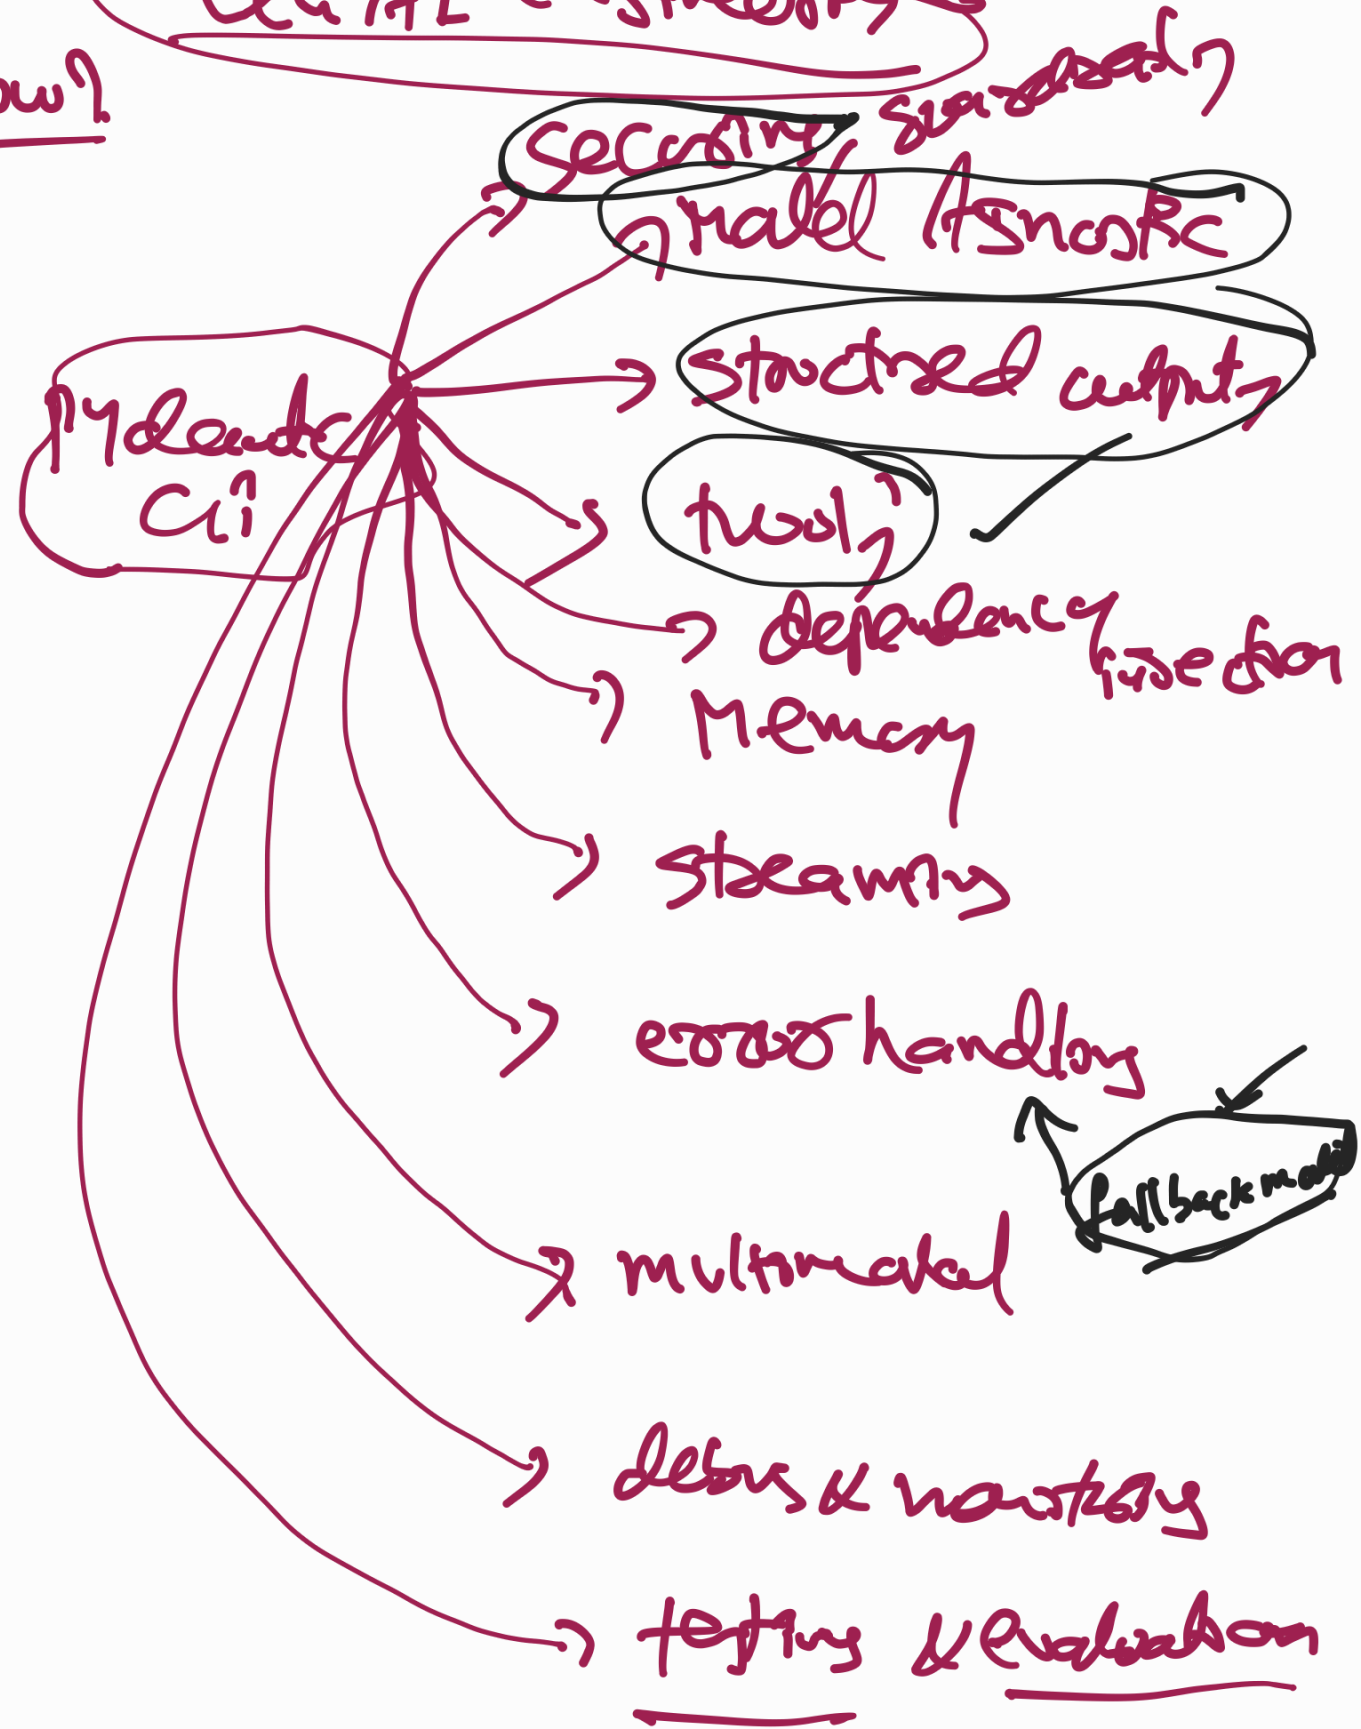 security guardrails
Model Agnostic
structured output
Pydantic
ai
tool
dependency
injection
Memory
streaming
error handling
fallback model
multimodal
debug & monitoring
testing & evaluation